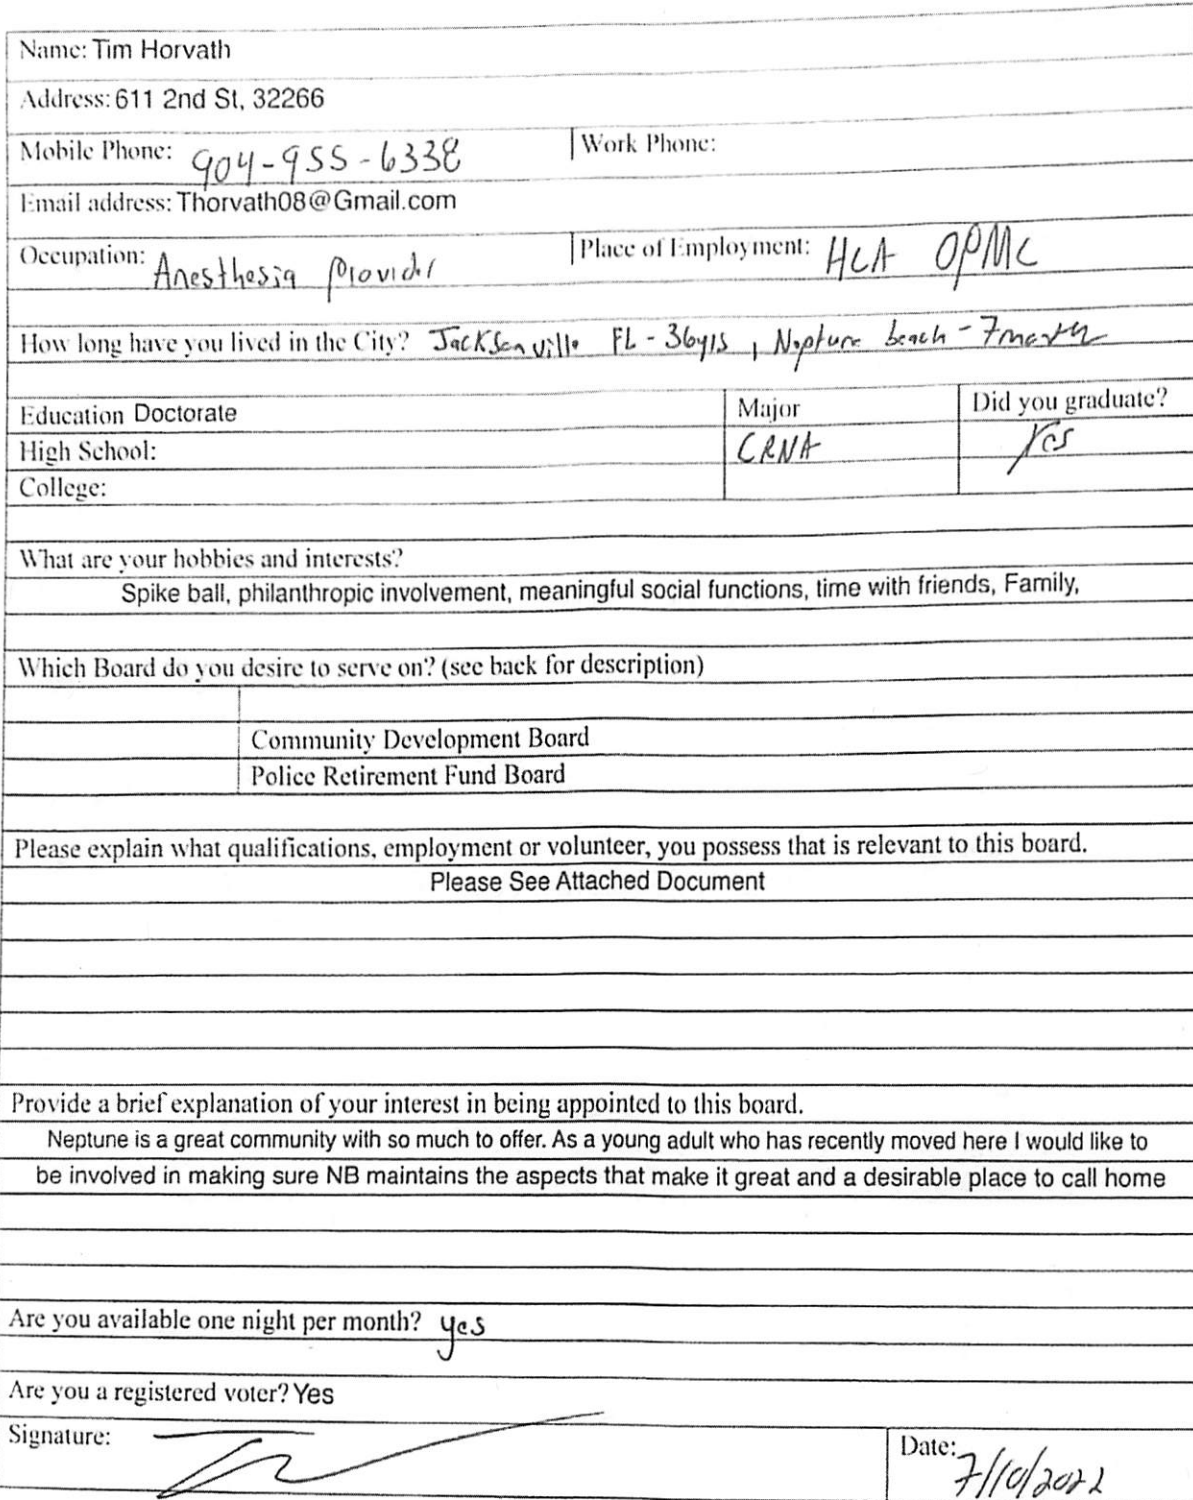 Name: Tim Horvath
Address: 611 2nd St, 32266
Mobile Phone: 904-955-6338 Work Phone:
Email address: Thorvath08@Gmail.com
Occupation: Anesthesia Provider Place of Employment: HCA OPMC
How long have you lived in the City? Jacksonville FL - 36yrs, Neptune beach - 7month
Education Doctorate Major Did you graduate?
High School: CRNA Yes
College:
What are your hobbies and interests?
Spike ball, philanthropic involvement, meaningful social functions, time with friends, Family,
Which Board do you desire to serve on? (see back for description)
Community Development Board
Police Retirement Fund Board
Please explain what qualifications, employment or volunteer, you possess that is relevant to this board.
Please See Attached Document
Provide a brief explanation of your interest in being appointed to this board.
Neptune is a great community with so much to offer. As a young adult who has recently moved here I would like to
be involved in making sure NB maintains the aspects that make it great and a desirable place to call home
Are you available one night per month? yes
Are you a registered voter? Yes
Signature: Date: 7/10/2022